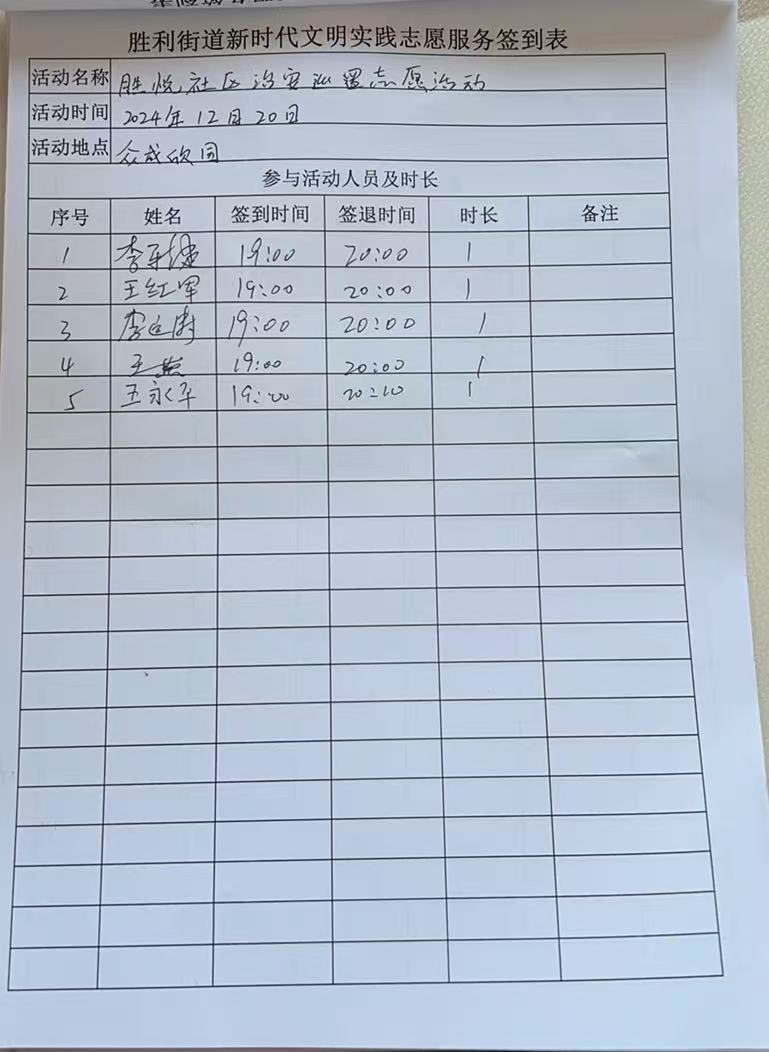 胜利街道新时代文明实践志愿服务签到表
活动名称 胜悦社区治安巡逻志愿活动
活动时间 2024年12月20日
活动地点 众成欣园
参与活动人员及时长
序号 姓名 签到时间 签退时间 时长 备注
1 李 19:00 20:00 1
2 王红军 19:00 20:00 1
3 李 19:00 20:00 1
4 王 19:00 20:00 1
5 王永平 19:00 20:00 1